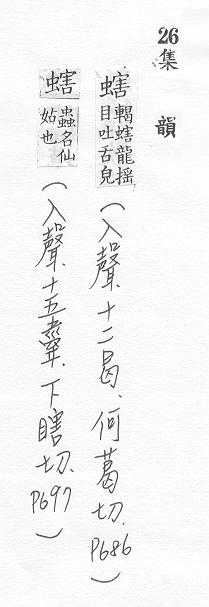 26
集韻
螛 輵螛龍搖
目吐舌皃
(入聲.十二曷、何葛切. P686)
螛 蟲名仙
姑也
(入聲.十五舝.下瞎切. P697)